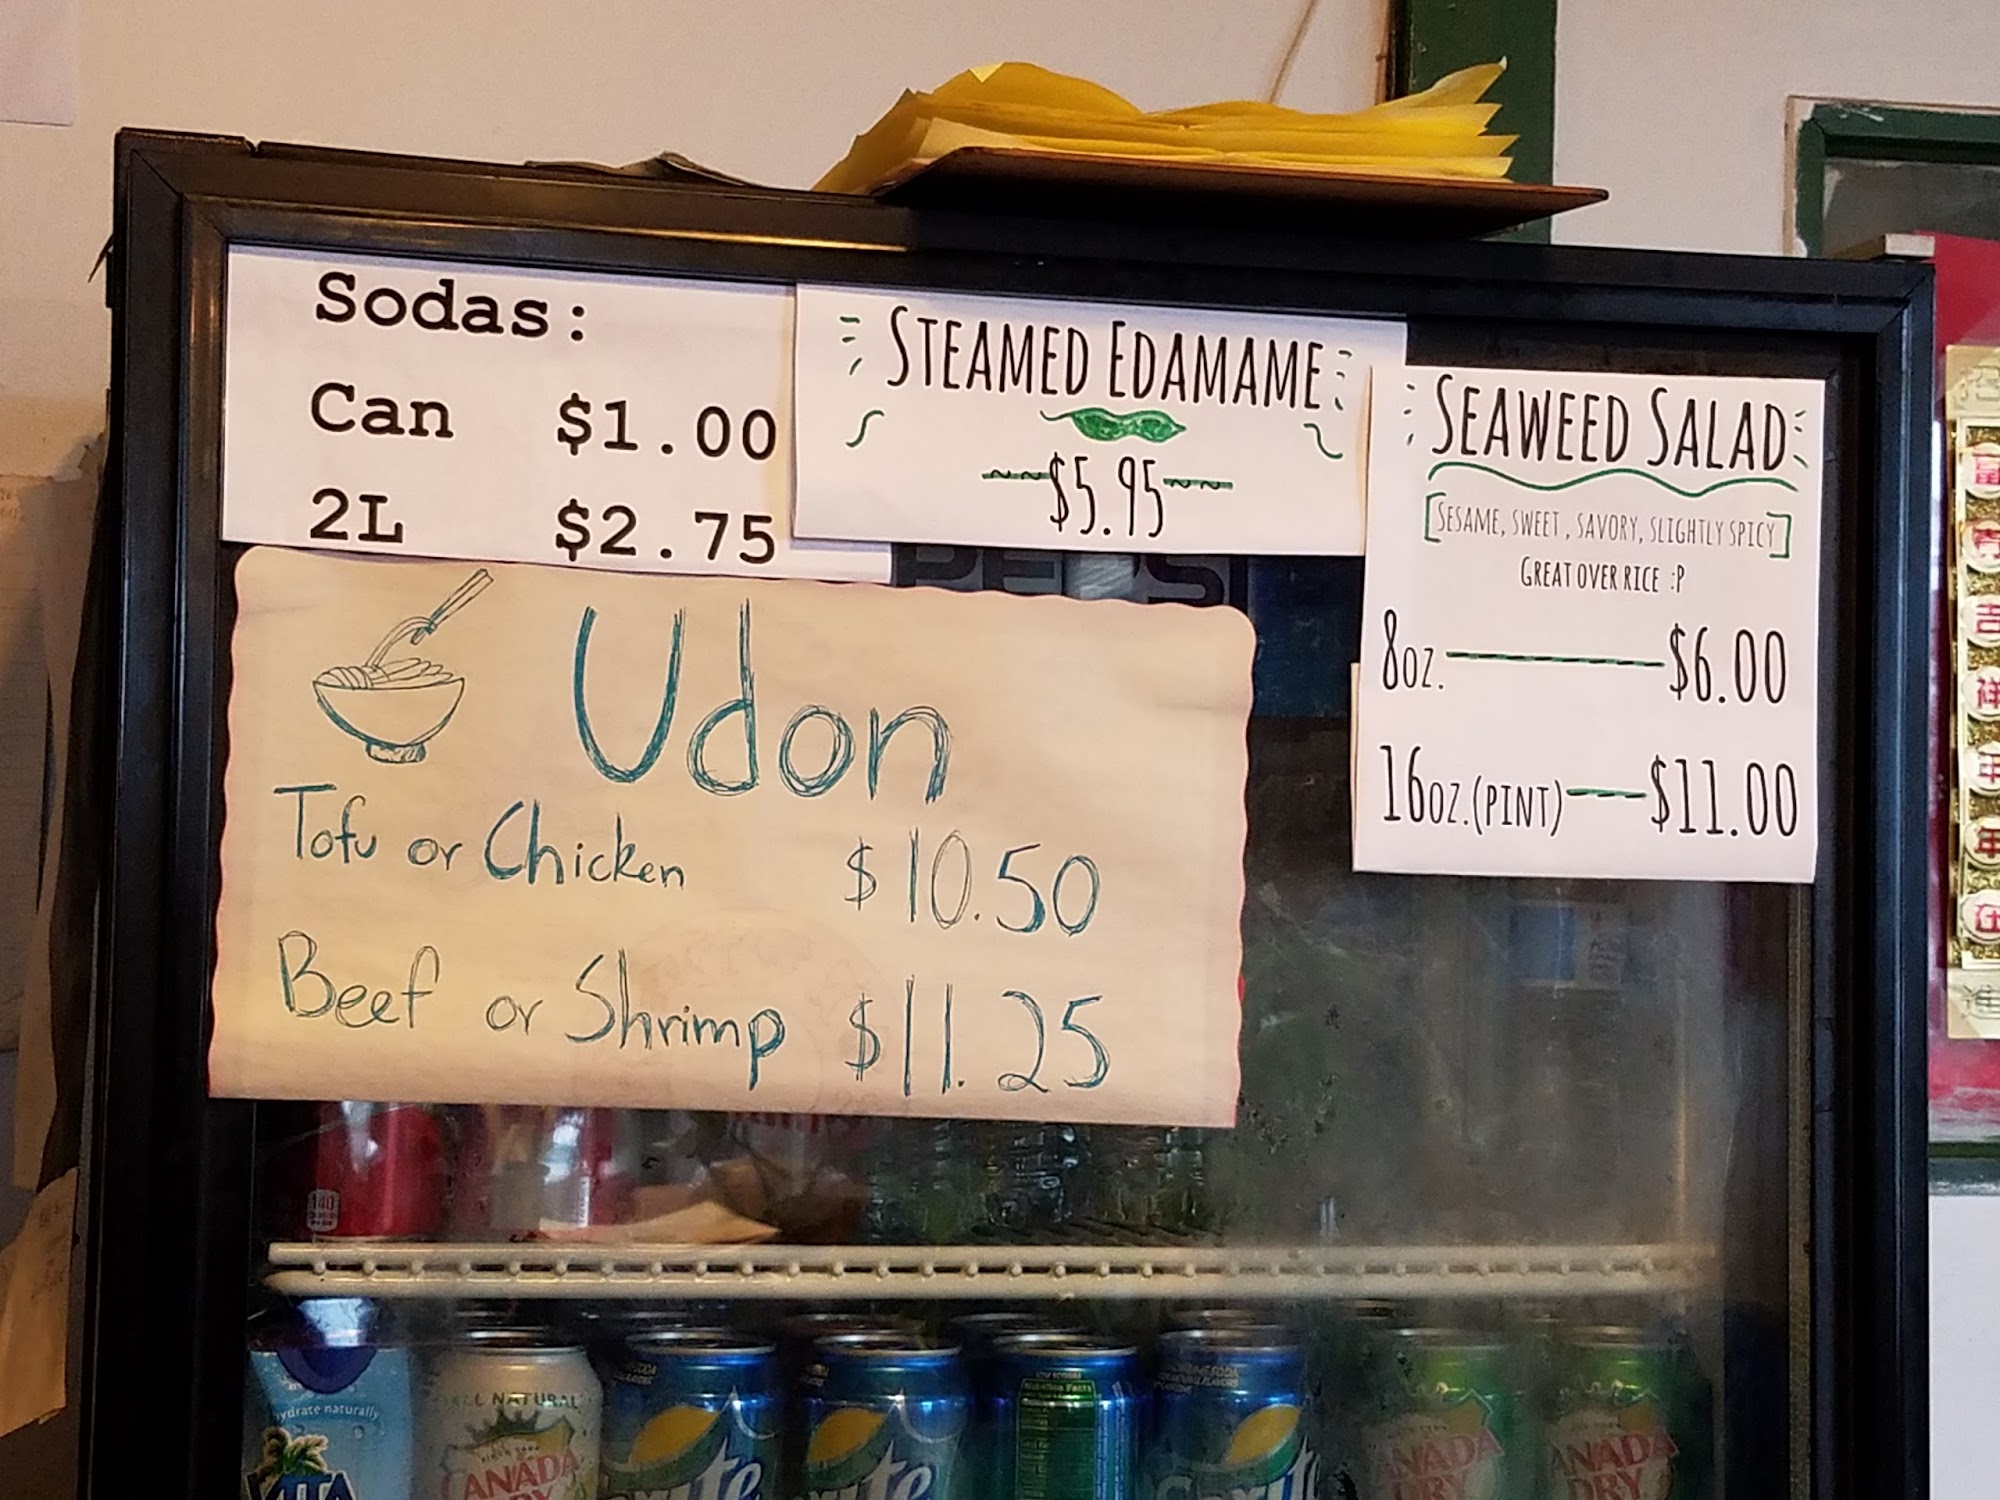 Sodas:
Can $1.00
2L $2.75
STEAMED EDAMAME
~~$5.95~~
SEAWEED SALAD
[SESAME, SWEET, SAVORY, SLIGHTLY SPICY]
GREAT OVER RICE :P
8oz. $6.00
16oz. (PINT) $11.00
Udon
Tofu or Chicken $10.50
Beef or Shrimp $11.25
PEPS
140
hydrate naturally
ALL NATURAL
CANADA
DRY
Sprite
Sprite
Nutrition Facts
Sprite
CANADA
DRY
CANADA
DRY
富
吉
祥
年
年